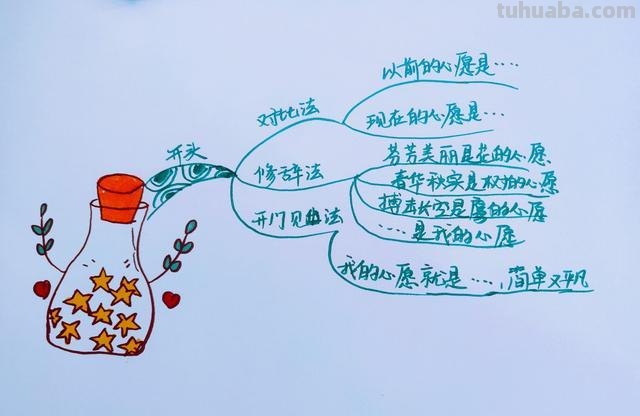 tuhuaba.com
以前的心愿是····
对比法
现在的心愿是···
开头
芬芳美丽是花的心愿
修辞法
春华秋实是树的心愿
搏击长空是鹰的心愿
开门见山法
····是我的心愿
我的心愿就是····,简单又平凡